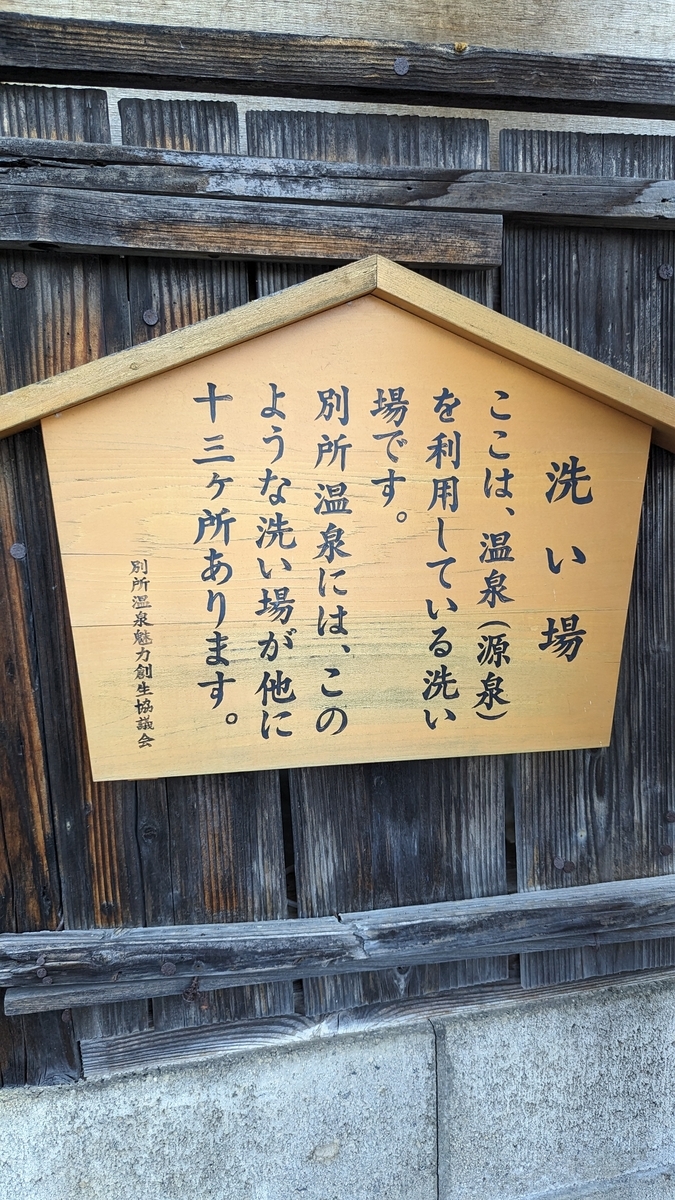 洗い場
ここは、温泉（源泉）
を利用している洗い
場です。
別所温泉には、この
ような洗い場が他に
十三ヶ所あります。
別所温泉魅力創生協議会